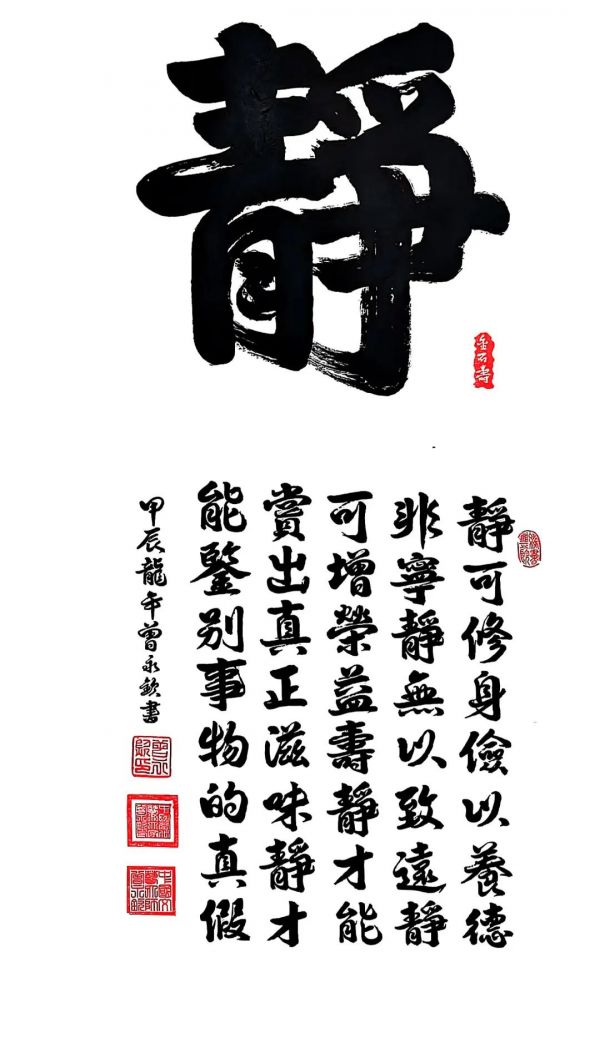 靜
金石壽
靜可修身儉以養德
非寧靜無以致遠靜
可增榮益壽靜才能
賞出真正滋味靜才
能鑒别事物的真假
甲辰龍年曾永欽書